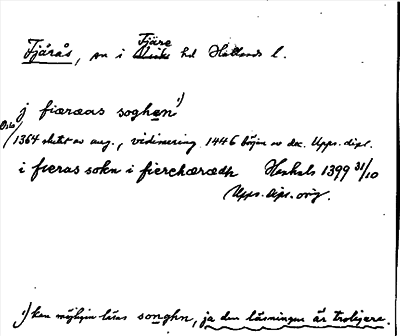 Fjärås, sn i Fjäre hd Hallands l.
j fiæraas soghen 1)
Oslo 1364 slutet av aug., vidimering 1446 början av dec. Upps. dipl.
i fieras sokn i fierehæradh Höxhals 1399 31/10
Upps. dipl. orig.
1) kan möjligen läsas songhn, ja den läsningen är troligare.